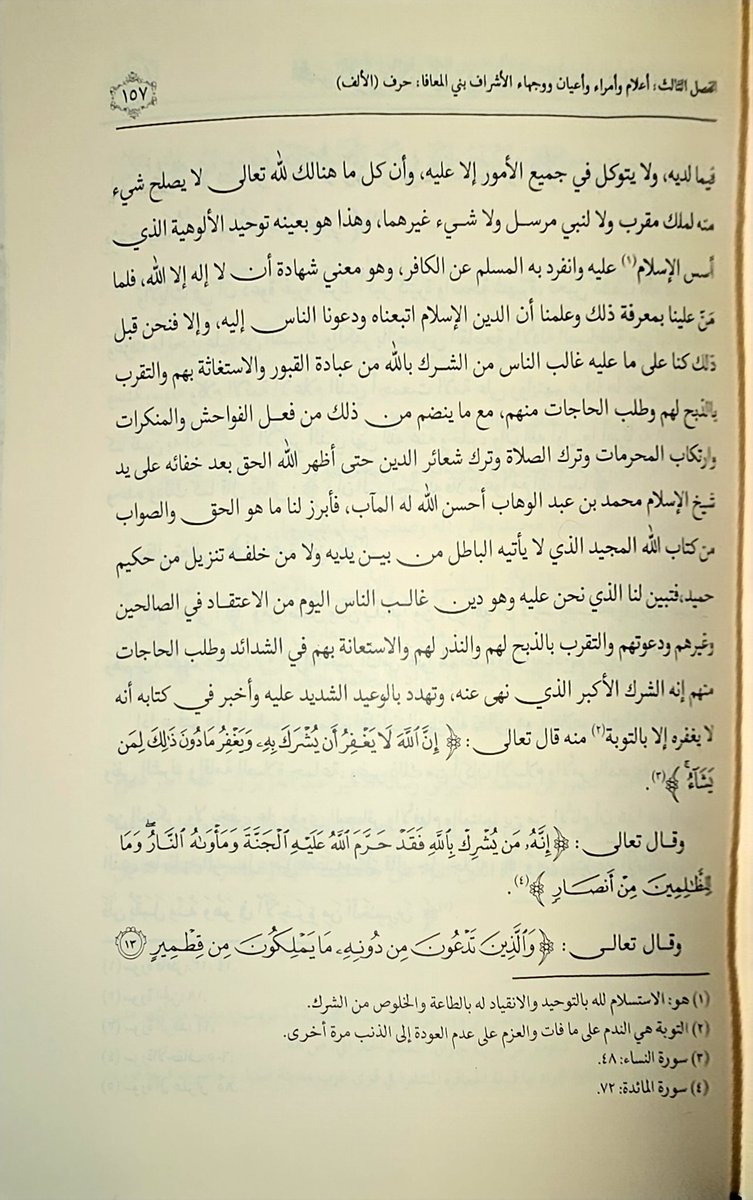 الفصل الثالث: أعلام وأمراء وأعيان ووجهاء الأشراف بني المعافا: حرف (الألف)
١٥٧
فيما لديه، ولا يتوكل في جميع الأمور إلا عليه، وأن كل ما هنالك لله تعالى لا يصلح شيء
منه لملك مقرب ولا لنبي مرسل ولا شيء غيرهما، وهذا هو بعينه توحيد الألوهية الذي
أسس الإسلام(١) عليه وانفرد به المسلم عن الكافر، وهو معني شهادة أن لا إله إلا الله، فلما
مَنّ علينا بمعرفة ذلك وعلمنا أن الدين الإسلام اتبعناه ودعونا الناس إليه، وإلا فنحن قبل
ذلك كنا على ما عليه غالب الناس من الشرك بالله من عبادة القبور والاستغاثة بهم والتقرب
بالذبح لهم وطلب الحاجات منهم، مع ما ينضم من ذلك من فعل الفواحش والمنكرات
وارتكاب المحرمات وترك الصلاة وترك شعائر الدين حتى أظهر الله الحق بعد خفائه على يد
شيخ الإسلام محمد بن عبد الوهاب أحسن الله له المآب، فأبرز لنا ما هو الحق والصواب
من كتاب الله المجيد الذي لا يأتيه الباطل من بين يديه ولا من خلفه تنزيل من حكيم
حميد،فتبين لنا الذي نحن عليه وهو دين غالب الناس اليوم من الاعتقاد في الصالحين
وغيرهم ودعوتهم والتقرب بالذبح لهم والنذر لهم والاستعانة بهم في الشدائد وطلب الحاجات
منهم إنه الشرك الأكبر الذي نهى عنه، وتهدد بالوعيد الشديد عليه وأخبر في كتابه أنه
لا يغفره إلا بالتوبة(٢) منه قال تعالى: ﴿إِنَّ اللَّهَ لَا يَغْفِرُ أَن يُشْرَكَ بِهِۦ وَيَغْفِرُ مَا دُونَ ذَٰلِكَ لِمَن
يَشَآءُ ۚ﴾(٣).
وقال تعالى: ﴿إِنَّهُۥ مَن يُشْرِكْ بِاللَّهِ فَقَدْ حَرَّمَ اللَّهُ عَلَيْهِ الْجَنَّةَ وَمَأْوَىٰهُ النَّارُ ۖ وَمَا
لِلظَّٰلِمِينَ مِنْ أَنصَارٍ﴾(٤).
وقال تعالى: ﴿وَالَّذِينَ تَدْعُونَ مِن دُونِهِۦ مَا يَمْلِكُونَ مِن قِطْمِيرٍ ١٣
(١) هو: الاستسلام لله بالتوحيد والانقياد له بالطاعة والخلوص من الشرك.
(٢) التوبة هي الندم على ما فات والعزم على عدم العودة إلى الذنب مرة أخرى.
(٣) سورة النساء: ٤٨.
(٤) سورة المائدة: ٧٢.